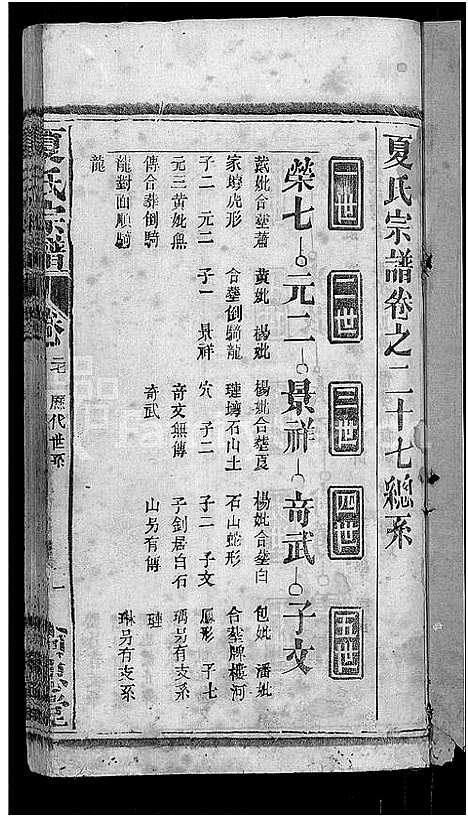 夏氏宗譜卷之二十七總系
一世 二世 三世 四世 五世
榮七 元二 景祥 竒武 子文
戴妣合塋蕭 黃妣 楊妣 楊妣合塋良 楊妣合塋白 包妣 潘妣
家塆虎形 合塋倒騎龍 璉壋石山土 石山蛇形 合塋牌樓河
子二 元二 子一 景祥 穴 子二 子二 子文 鳳形 子七
元三黃妣無 竒文無傳 子釗居白石 瑀另有支系
傳合葬倒騎 竒武 山另有傳 璉
龍對面順騎 琳另有支系
龍
夏氏宗譜
卷 歷代世系 一